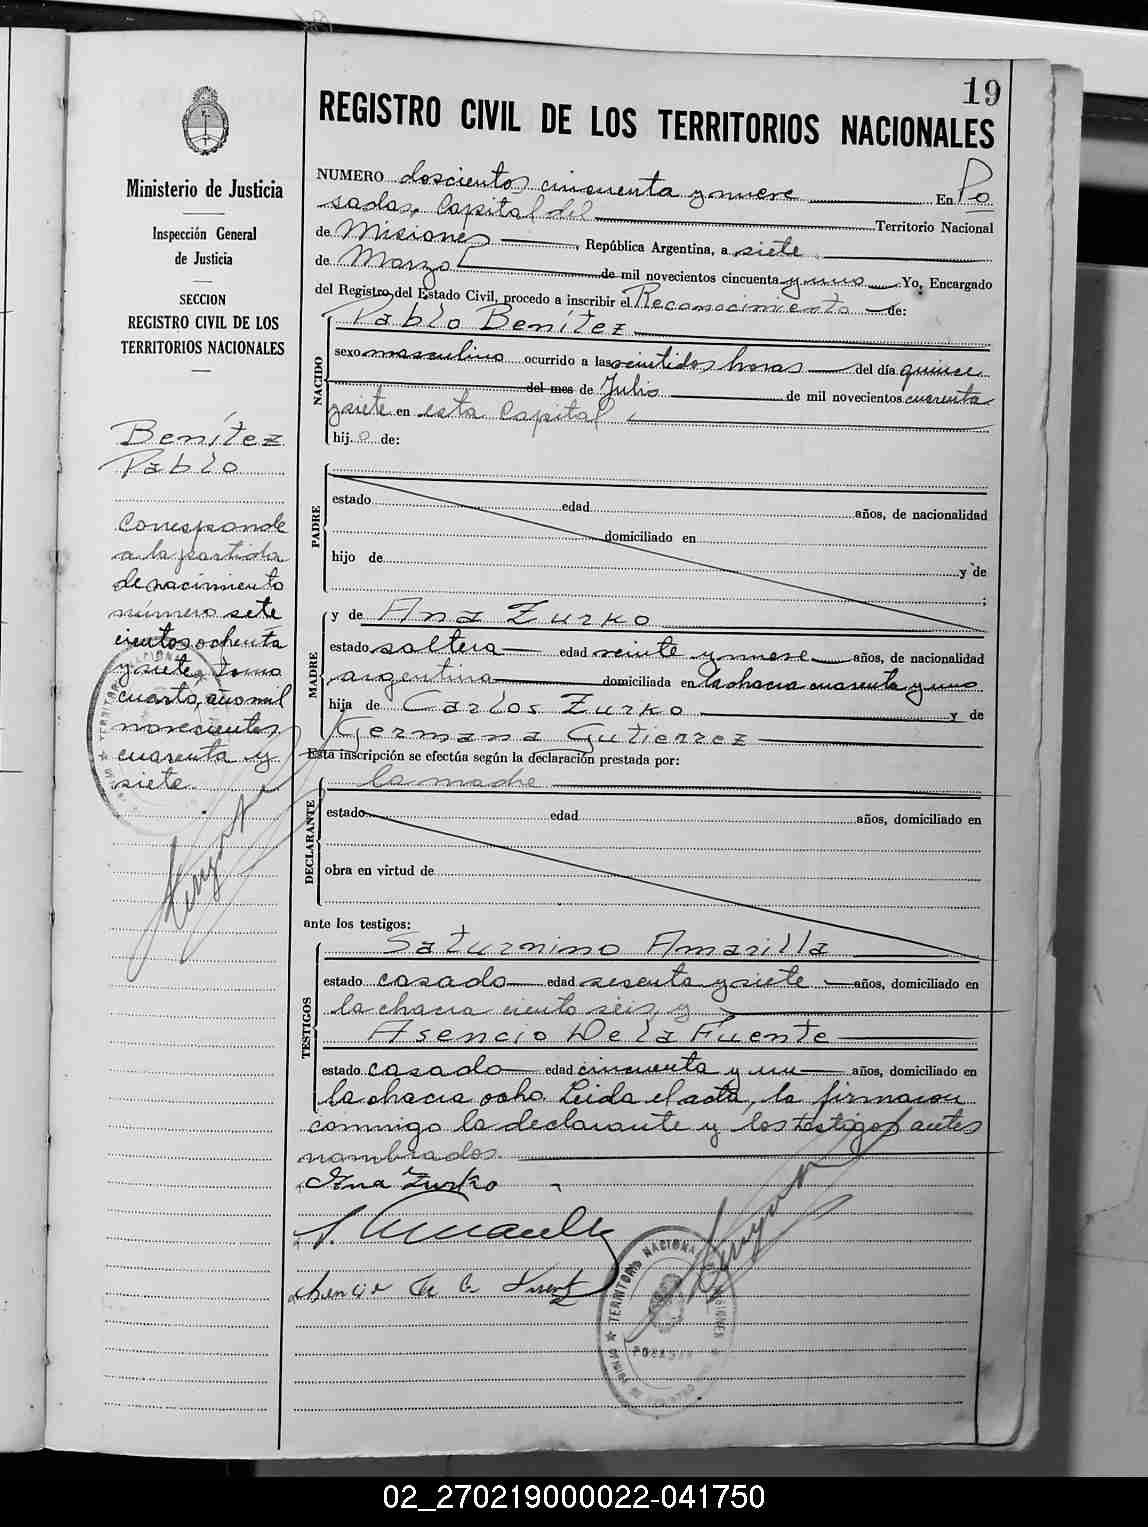 19
REGISTRO CIVIL DE LOS TERRITORIOS NACIONALES
Ministerio de Justicia
Inspección General
de Justicia
SECCION
REGISTRO CIVIL DE LOS
TERRITORIOS NACIONALES
Benítez
Pablo
Corresponde
a la partida
de nacimiento
número sete
cientos ochenta
y siete, tomo
cuarto, año mil
novecientos
cuarenta y
siete.
NUMERO doscientos cincuenta y nueve En Po
sadas, Capital del Territorio Nacional
de Misiones, República Argentina, a siete
de Marzo de mil novecientos cincuenta y uno Yo, Encargado
del Registro del Estado Civil, procedo a inscribir el Reconocimiento de:
Pablo Benítez
NACIDO
sexo masculino ocurrido a las veintidos horas del día quince
del mes de Julio de mil novecientos cuarenta
y siete en esta Capital
hijo de:
PADRE
estado edad años, de nacionalidad
domiciliado en
hijo de y de
;
MADRE
y de Ana Zurko
estado soltera edad veinte y nueve años, de nacionalidad
argentina domiciliada en la chacra cuarenta y uno
hija de Carlos Zurko y de
Germana Gutierrez
Esta inscripción se efectúa según la declaración prestada por:
la madre
DECLARANTE
estado edad años, domiciliado en
obra en virtud de
ante los testigos:
TESTIGOS
Saturnino Amarilla
estado casado edad sesenta y siete años, domiciliado en
la chacra ciento seis, y
Asencio De la Fuente
estado casado edad cincuenta y un años, domiciliado en
la chacra ocho. Leida el acta, la firmaron
conmigo la declarante y los testigos antes
nombrados.
Ana Zurko
TERRITORIO NACIONAL MISIONES
POSADAS
02_270219000022-041750